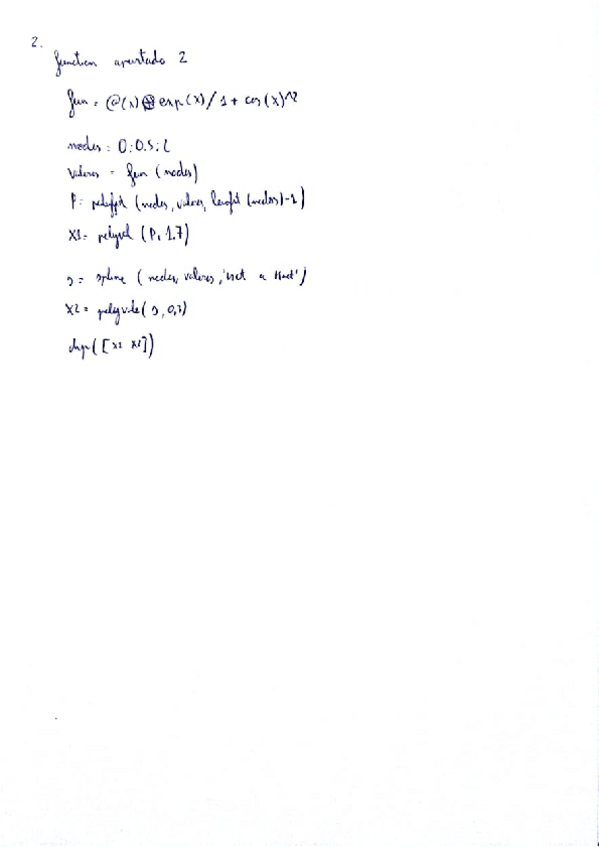 2.
function apartado 2
fun = @(x) exp(x)/1 + cos(x)^2
nodes = 0:0.5:2
valores = fun (nodes)
P = (nodes, valores, length (nodos)-1)
x1 = polyval (P, 1.7)
s = spline (nodes, valores, a
x2 = (s, 0,7)
disp([x1 x2])